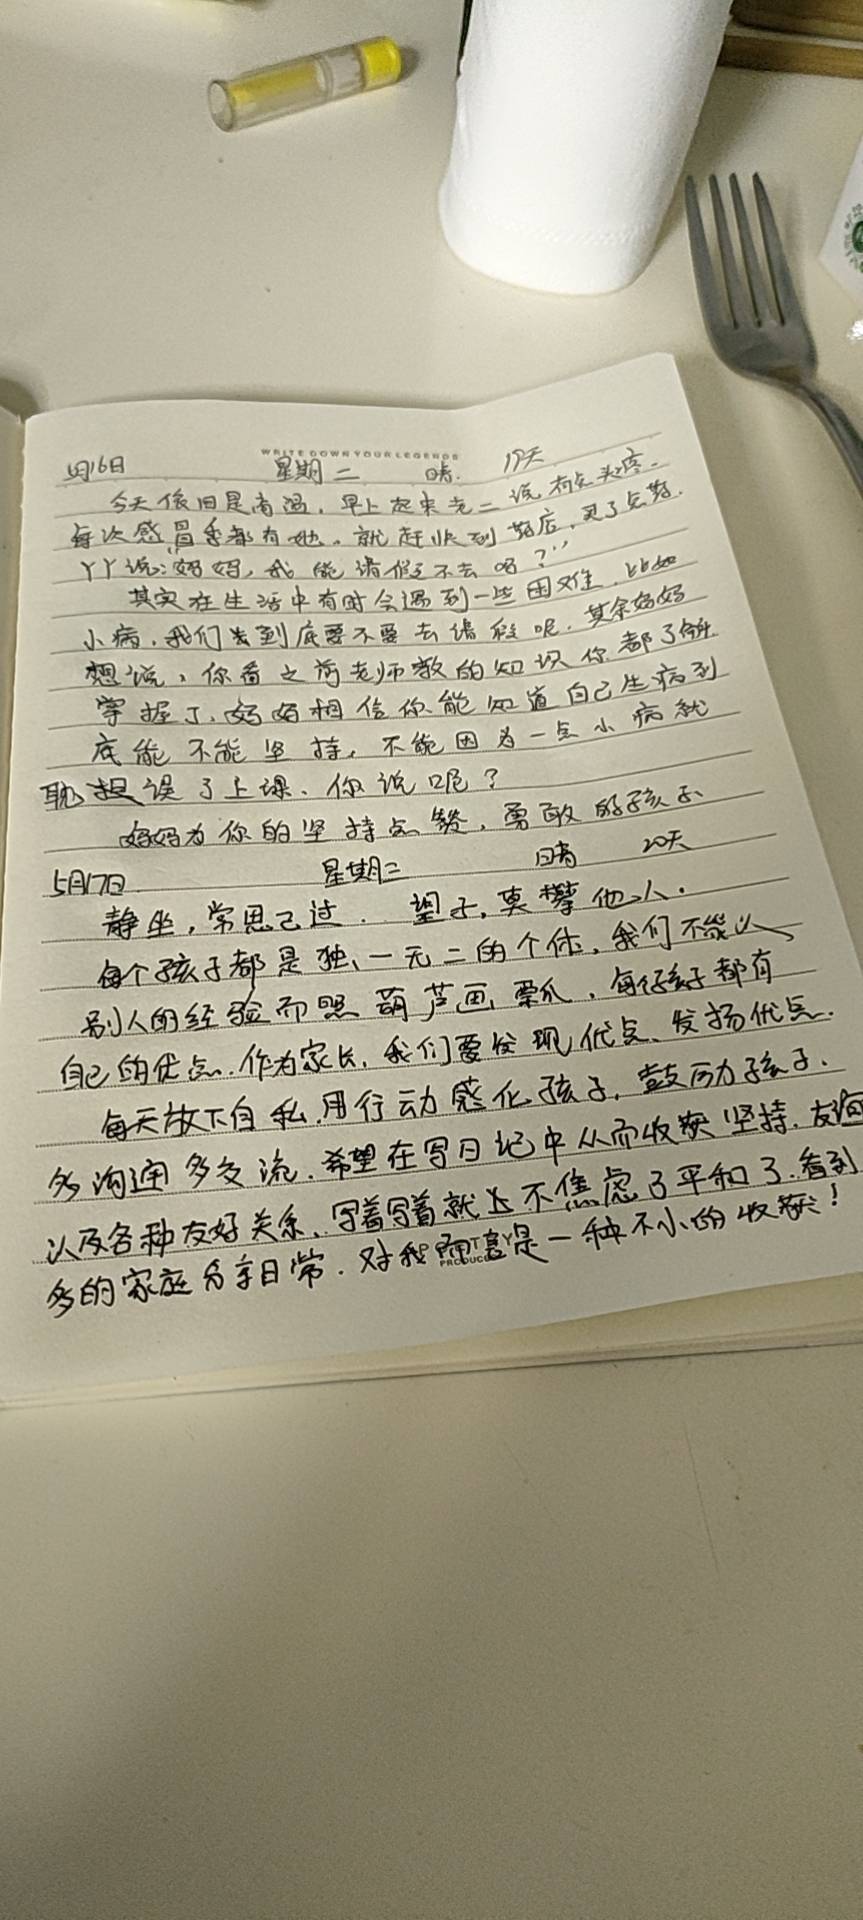 WRITE DOWN YOUR LEGENDS
5月16日 星期二 晴. 19天
今天依旧是高温，早上起来老二说有点头疼.
每次感冒季都有她。就赶快到药店，买了点药.
丫丫说:"妈妈，我能请假不去吗？"
其实在生活中有时会遇到一些困难，比如
小病，我们到底要不要去请假呢．其余妈妈
想说，你看之前老师教的知识你都了解
掌握了，妈妈相信你能知道自己生病到
底能不能坚持，不能因为一点小病就
耽误了上课、你说呢？
妈妈为你的坚持点赞，勇敢的孩子、
5月17日 星期三 晴 20天
静坐，常思己过． 望子，莫攀他人．
每个孩子都是独、一无二的个体，我们不能以
别人的经验而照葫芦画瓢，每个孩子都有
自己的优点．作为家长，我们要发现优点、发扬优点．
每天放下自私，用行动感化孩子，鼓励孩子．
多沟通多交流．希望在写日记中从而收获坚持．友谊
以及各种友好关系、写着写着就不焦虑了平和了．看到
多的家庭分享日常．对我而言是一种不小的收获！